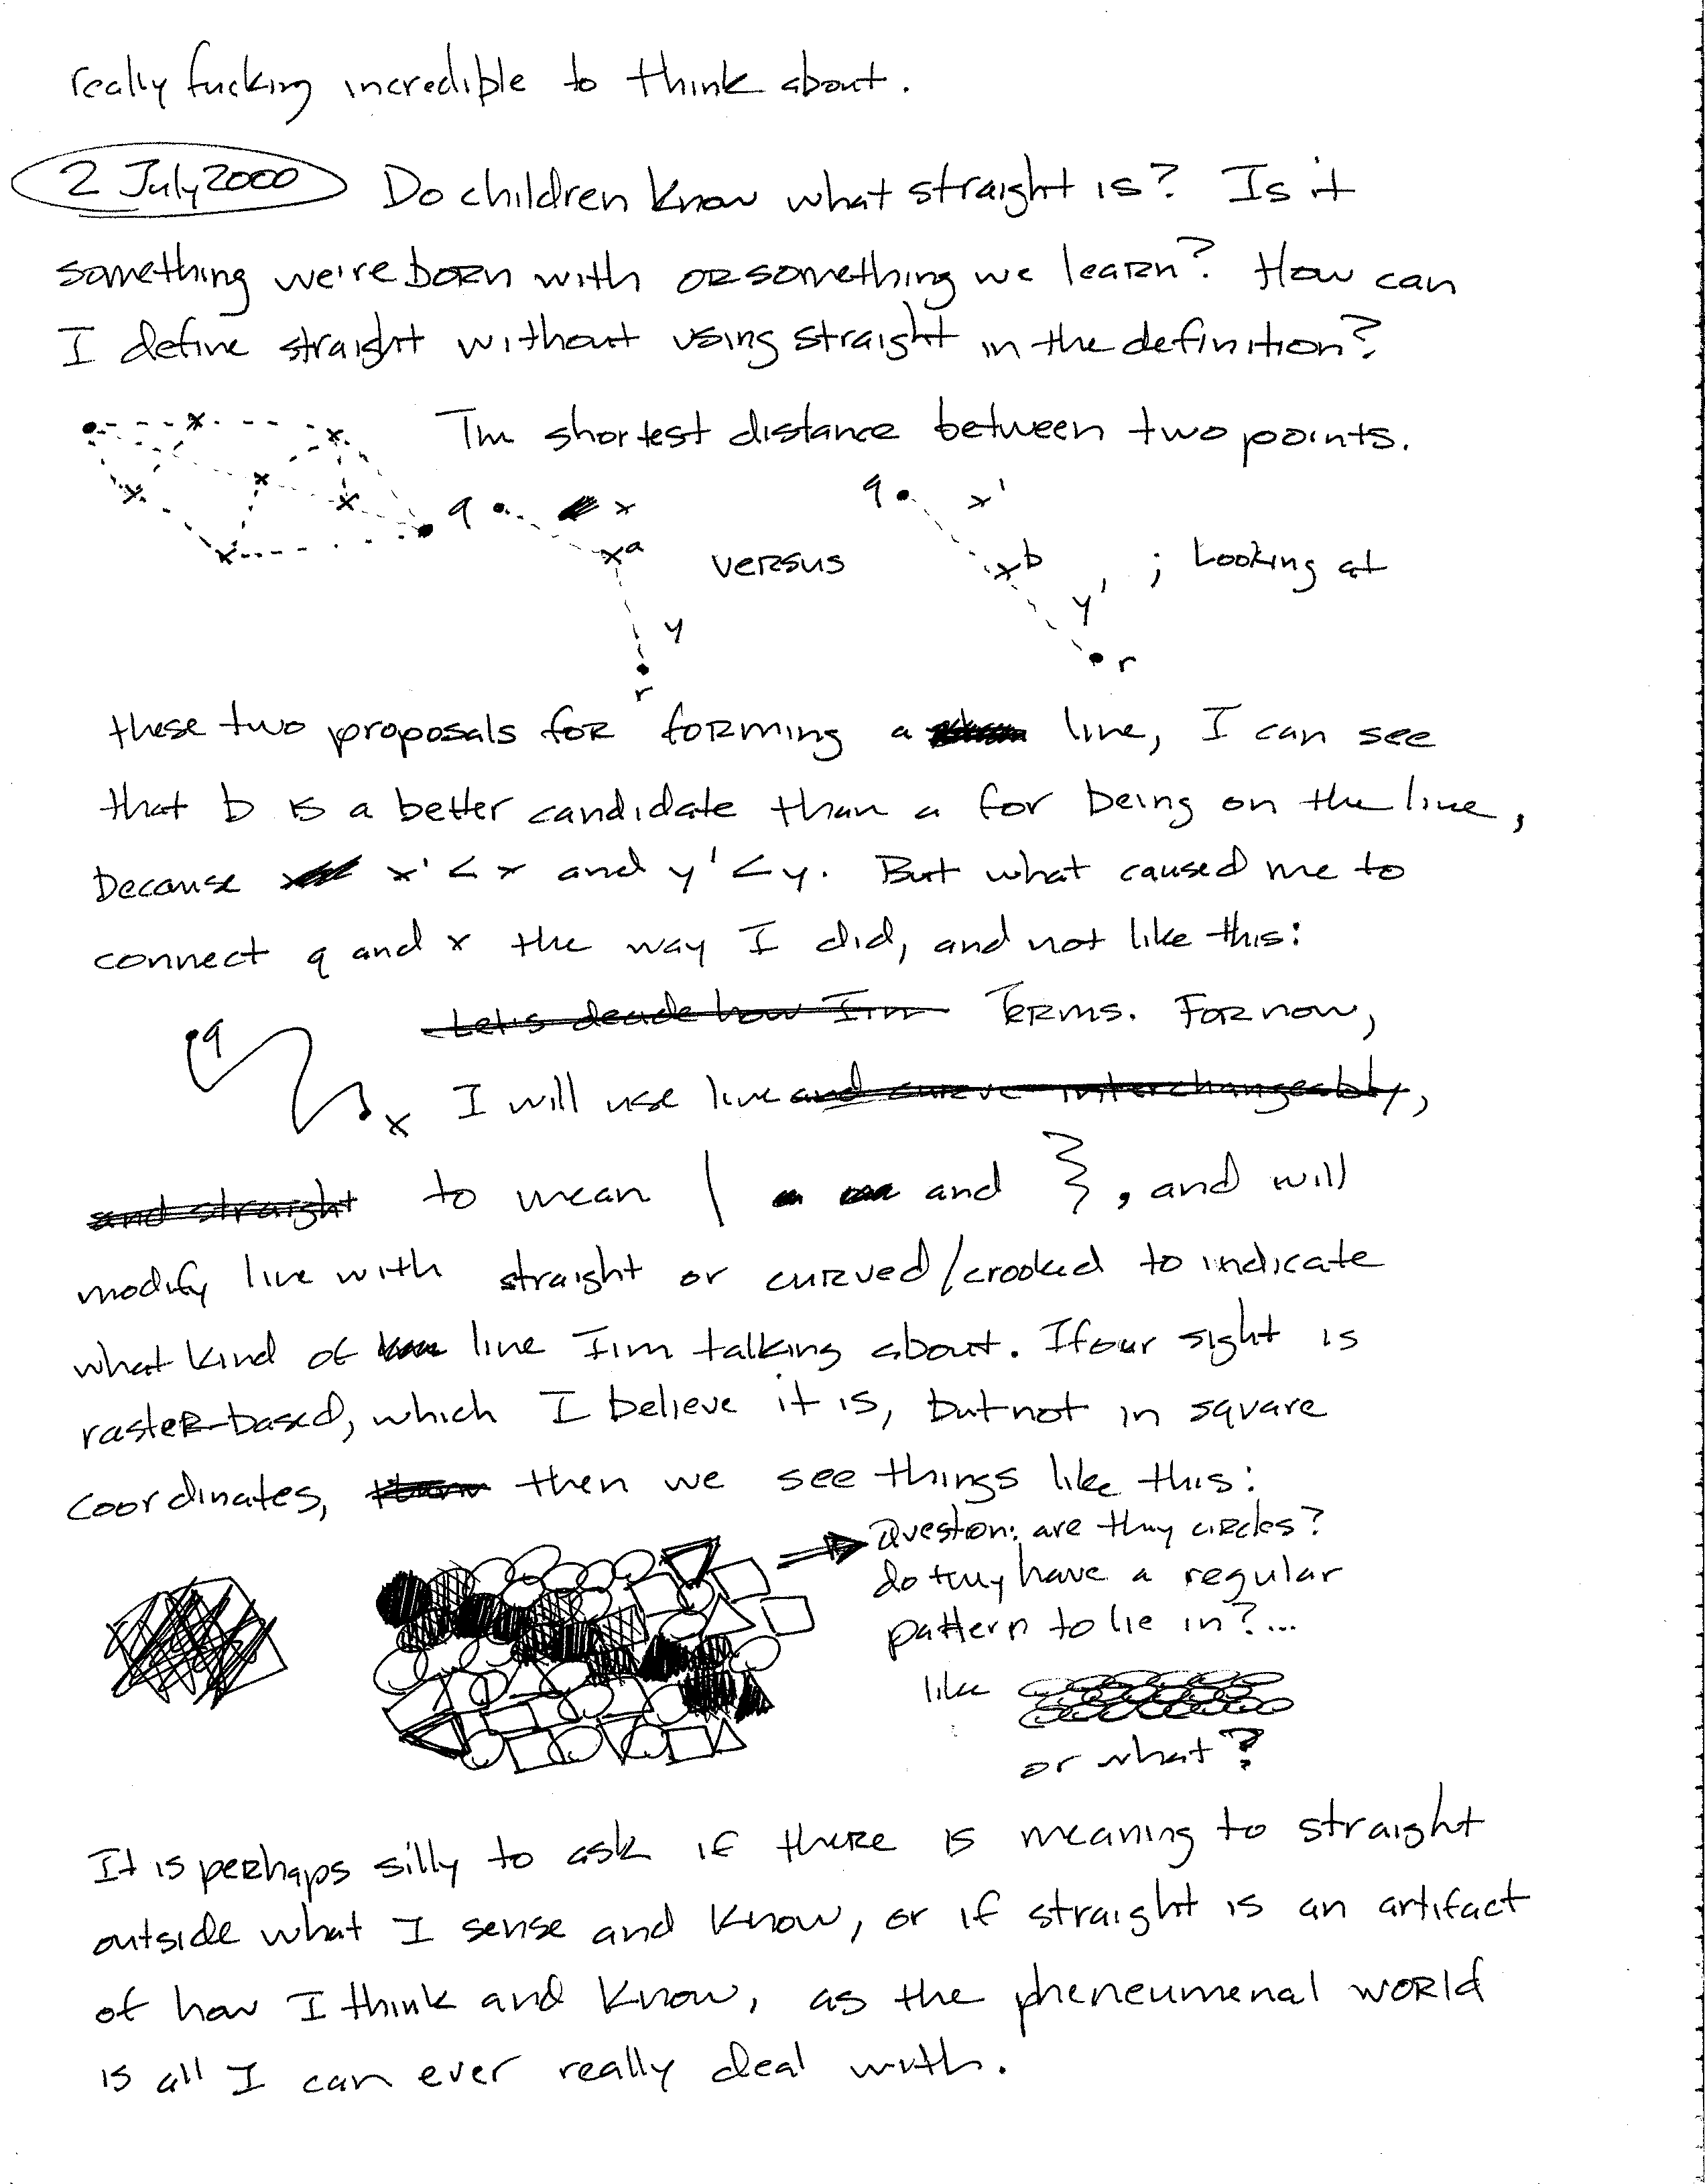 really fucking incredible to think about.
2 July 2000 Do children know what straight is? Is it
something we're born with or something we learn? How can
I define straight without using straight in the definition?
The shortest distance between two points.
q x x a y r
versus
q x' x b y' r
; Looking at
these two proposals for forming a line, I can see
that b is a better candidate than a for being on the line,
because x' < x and y' < y. But what caused me to
connect q and x the way I did, and not like this:
q x
Let's decide how I'm Terms. For now,
I will use line and curve interchangeably,
and straight to mean | and }, and will
modify line with straight or curved/crooked to indicate
what kind of line I'm talking about. If our sight is
raster-based, which I believe it is, but not in square
coordinates, then we see things like this:
Question: are they circles?
do they have a regular
pattern to lie in?...
like
or what?
It is perhaps silly to ask if there is meaning to straight
outside what I sense and know, or if straight is an artifact
of how I think and know, as the pheneumenal world
is all I can ever really deal with.